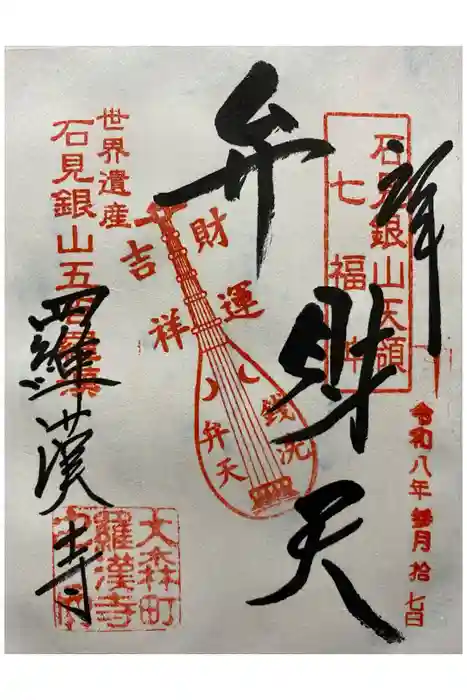 拝
石見銀山天領
七福神
令和八年 参月 拾七日
弁財天
財運
吉祥
銭洗
弁天
世界遺産
石見銀山五百羅漢
羅漢寺
大森町
羅漢寺